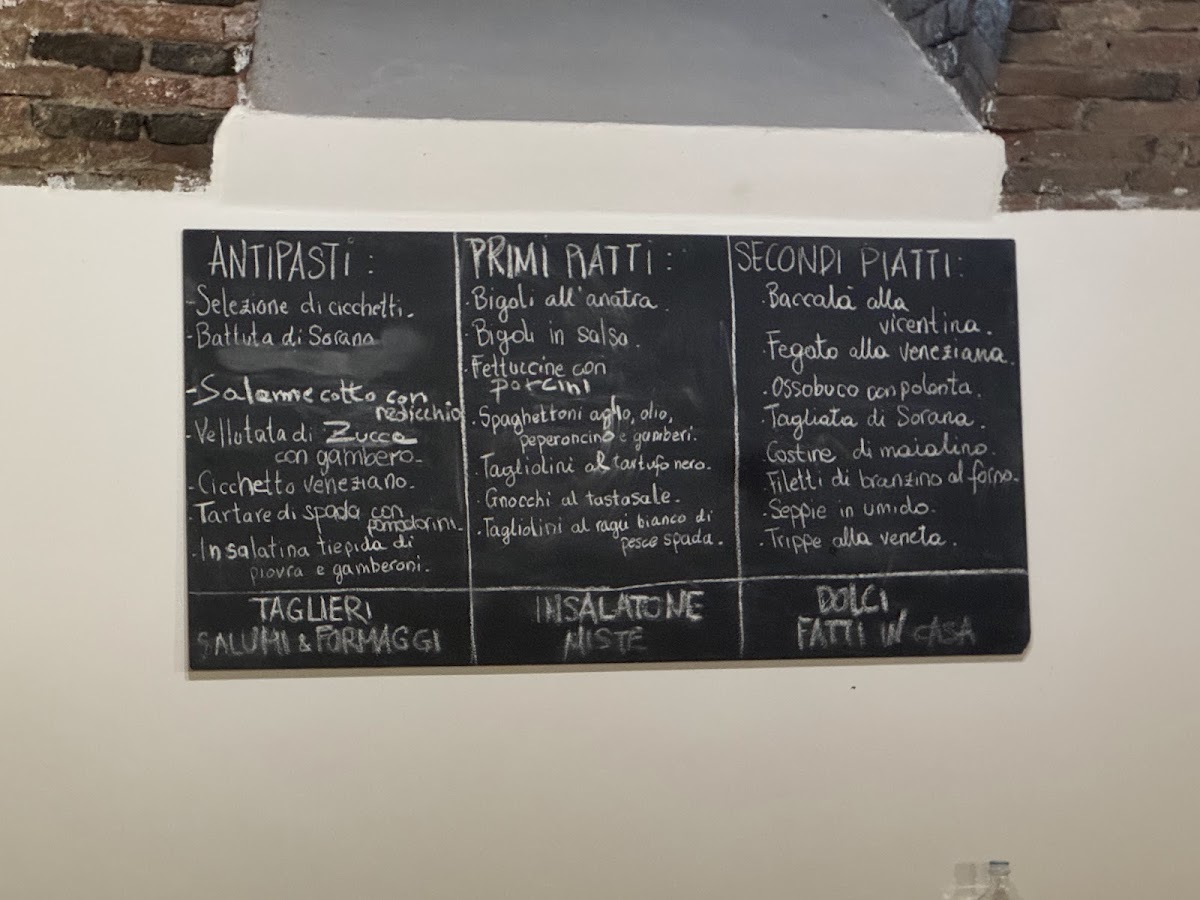 ANTIPASTI :
- Selezione di cicchetti.
- Battuta di Sorana
- Salame cotto con
redicchio
- Vellutata di Zucca
con gambero -
- Cicchetto veneziano.
- Tartare di spada con
pomodorini -
- Insalatina tiepida di
piovra e gamberoni.
TAGLIERI
SALUMI & FORMAGGI
PRIMI PIATTI :
· Bigoli all'anatra.
· Bigoli in salsa.
· Fettuccine con
porcini
· Spaghettoni aglio, olio,
peperoncino e gamberi.
· Tagliolini al tartufo nero.
· Gnocchi al tastasale.
· Tagliolini al ragù bianco di
pesce spada.
INSALATONE
MISTE
SECONDI PIATTI :
· Baccalà alla
vicentina.
· Fegato alla veneziana.
· Ossobuco con polenta.
· Tagliata di Sorana.
· Costine di maialino.
· Filetti di branzino al forno.
· Seppie in umido.
· Trippe alla veneta.
DOLCI
FATTI IN CASA